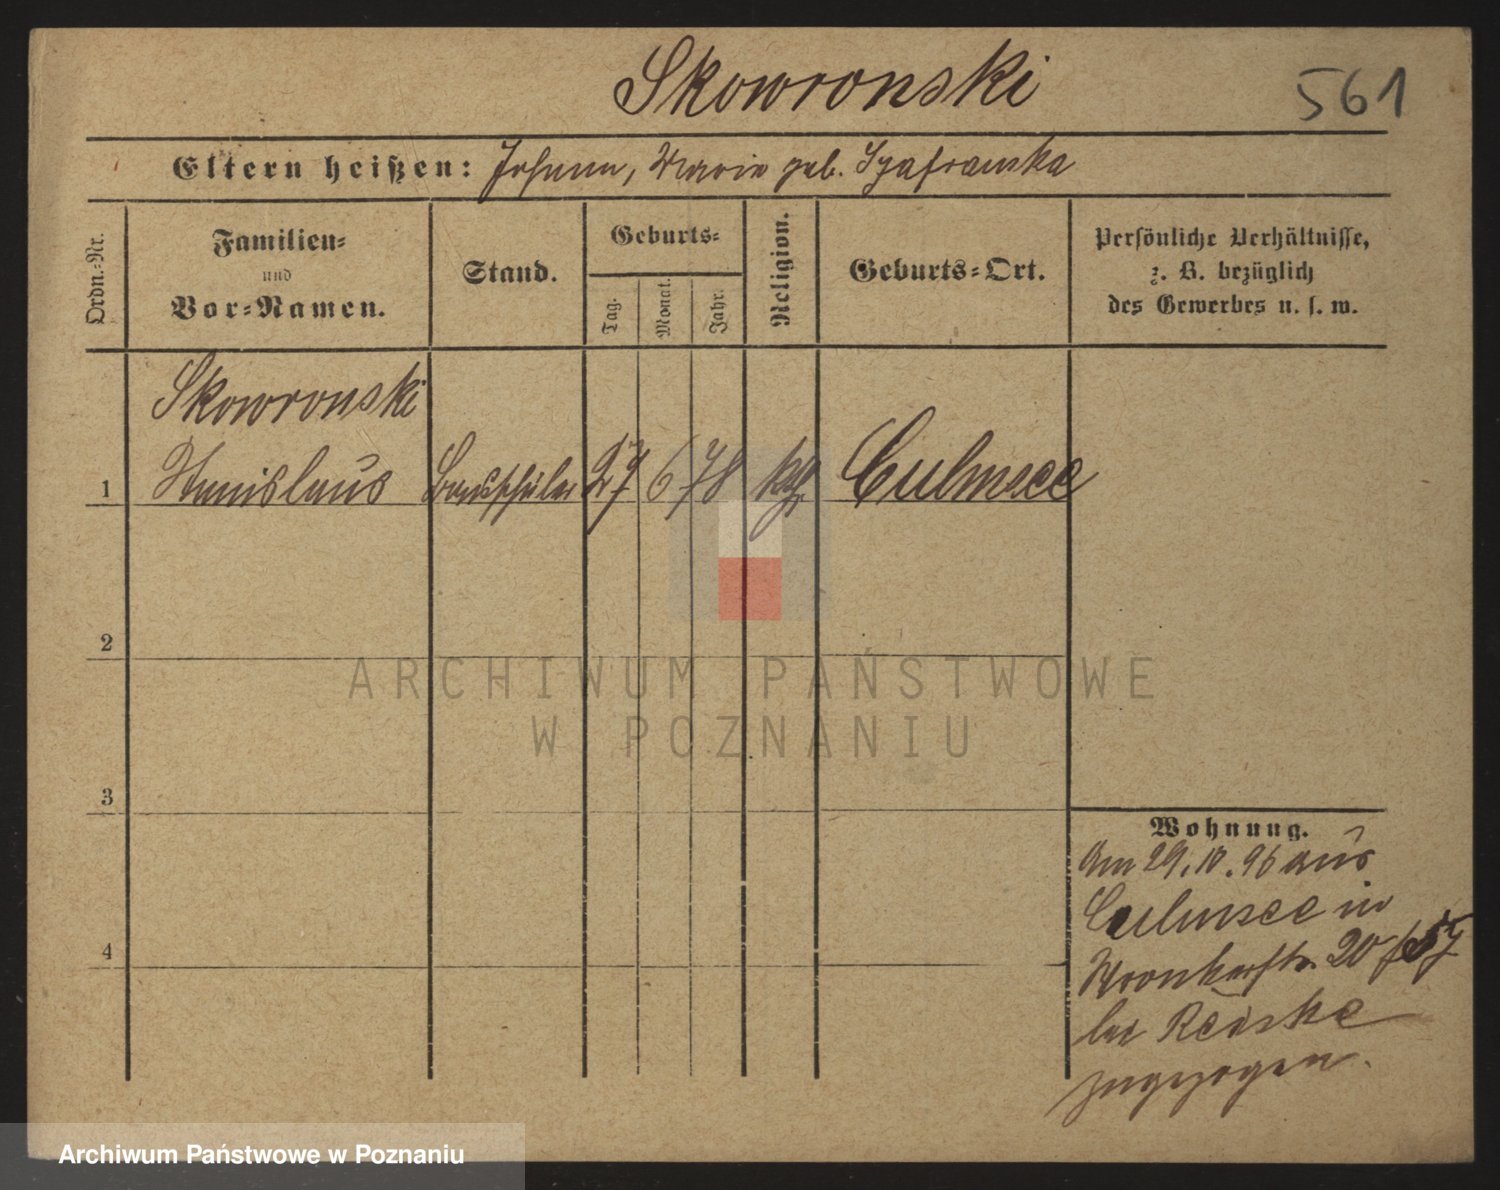 Skowronski
561
Eltern heißen: Johann, Marie geb. Szafranska
Ordn.-Nr.
Familien-
und
Vor-Namen.
Stand.
Geburts-
Tag.
Monat.
Jahr.
Religion.
Geburts-Ort.
Persönliche Verhältnisse,
z. B. bezüglich
des Gewerbes u. s. w.
Skowronski
1 Stanislaus Bauschüler 27 6 78 kth. Culmsee
2
3
4
Wohnung.
Am 29.10.96 aus
Culmsee in
Wronkerstr. 20
bei Reiske
zugezogen.
ARCHIWUM PAŃSTWOWE
W POZNANIU
Archiwum Państwowe w Poznaniu